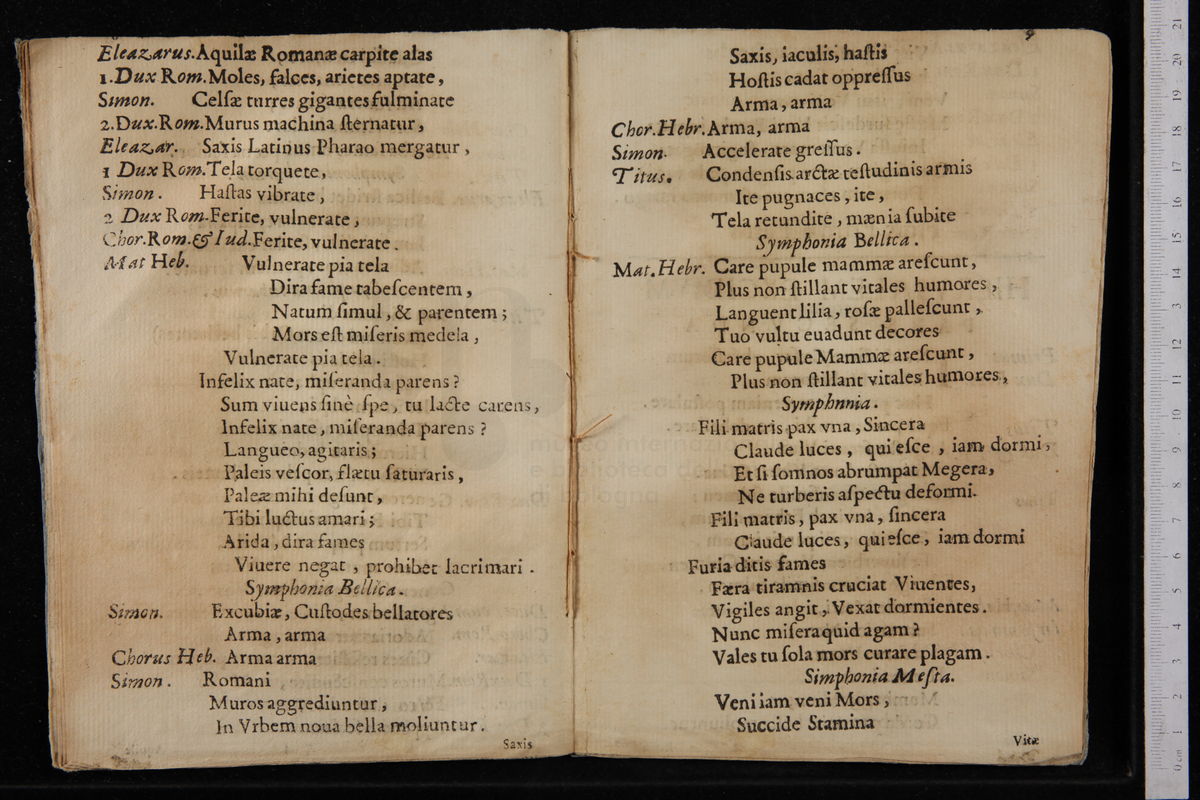 Eleazarus. Aquilæ Romanæ carpite alas
1. Dux Rom. Moles, falces, arietes aptate,
Simon. Celſæ turres gigantes fulminate
2. Dux. Rom. Murus machina ſternatur,
Eleazar. Saxis Latinus Pharao mergatur,
1 Dux Rom. Tela torquete,
Simon. Haſtas vibrate,
2 Dux Rom. Ferite, vulnerate,
Chor. Rom. & Iud. Ferite, vulnerate.
Mat Heb. Vulnerate pia tela
Dira fame tabeſcentem,
Natum ſimul, & parentem;
Mors eſt miſeris medela,
Vulnerate pia tela.
Infelix nate, miſeranda parens?
Sum viuens ſinè ſpe, tu lacte carens,
Infelix nate, miſeranda parens?
Langueo, agitaris;
Paleis veſcor, flætu ſaturaris,
Paleæ mihi deſunt,
Tibi luctus amari;
Arida, dira fames
Viuere negat, prohibet lacrimari.
Symphonia Bellica.
Simon. Excubiæ, Cuſtodes bellatores
Arma, arma
Chorus Heb. Arma arma
Simon. Romani
Muros aggrediuntur,
In Vrbem noua bella moliuntur.
Saxis
9
Saxis, iaculis, haſtis
Hoſtis cadat oppreſſus
Arma, arma
Chor. Hebr. Arma, arma
Simon. Accelerate greſſus.
Titus. Condenſis arctæ teſtudinis armis
Ite pugnaces, ite,
Tela retundite, mænia ſubite
Symphonia Bellica.
Mat. Hebr. Care pupule mammæ areſcunt,
Plus non ſtillant vitales humores,
Languent lilia, roſæ palleſcunt,
Tuo vultu euadunt decores
Care pupule Mammæ areſcunt,
Plus non ſtillant vitales humores,
Symphnnia.
Fili matris pax vna, Sincera
Claude luces, quieſce, iam dormi,
Et ſi ſomnos abrumpat Megera,
Ne turberis aſpectu deformi.
Fili matris, pax vna, ſincera
Claude luces, quieſce, iam dormi
Furia ditis fames
Færa tiramnis cruciat Viuentes,
Vigiles angit, Vexat dormientes.
Nunc miſera quid agam?
Vales tu ſola mors curare plagam.
Simphonia Meſta.
Veni iam veni Mors,
Succide Stamina
Vitæ